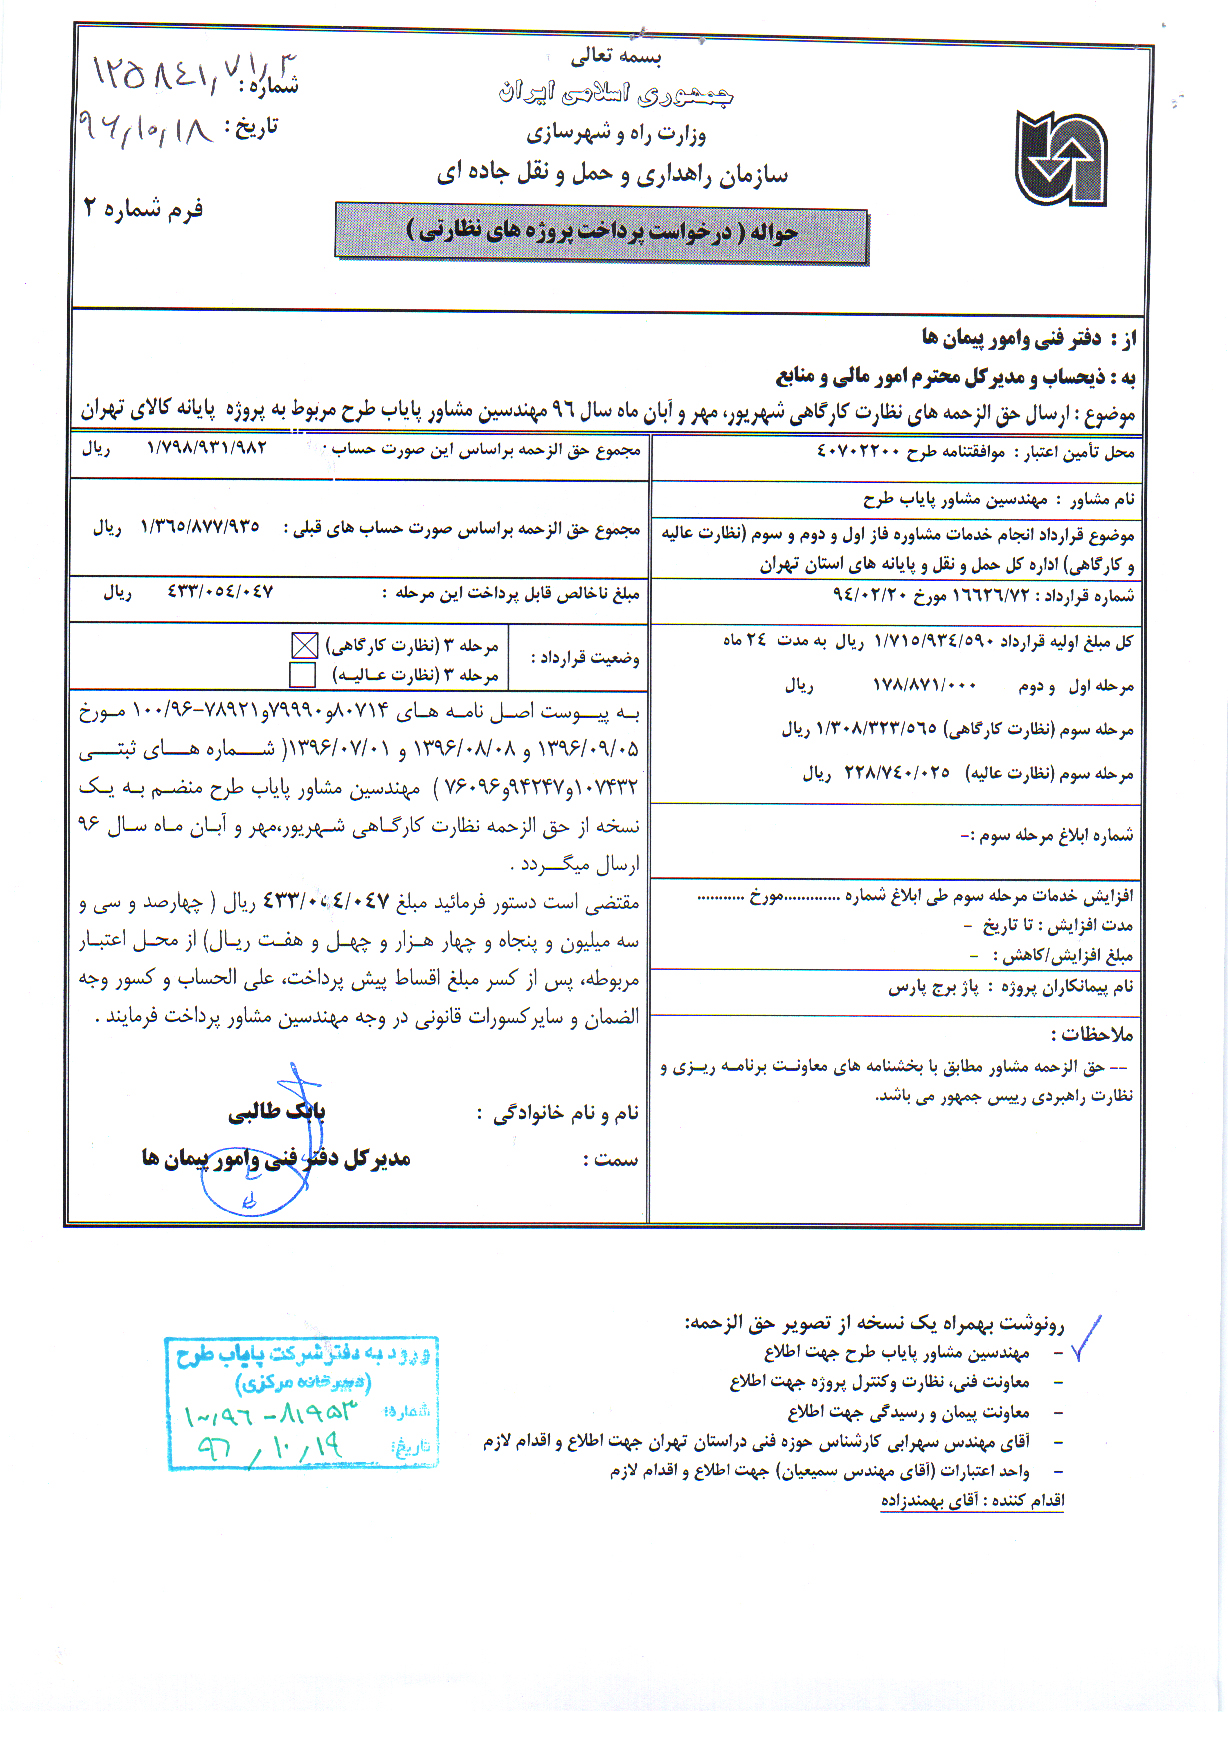 بسمه تعالی
جمهوری اسلامی ایران
وزارت راه و شهرسازی
سازمان راهداری و حمل و نقل جاده ای
شماره: ۱۲۵۸۴۱/۷۱/۳
تاریخ: ۹۶/۱۰/۱۸
فرم شماره ۲
حواله ( درخواست پرداخت پروژه های نظارتی )
از : دفتر فنی وامور پیمان ها
به : ذیحساب و مدیرکل محترم امور مالی و منابع
موضوع : ارسال حق الزحمه های نظارت کارگاهی شهریور، مهر و آبان ماه سال ۹۶ مهندسین مشاور پایاب طرح مربوط به پروژه پایانه کالای تهران
محل تأمین اعتبار : موافقتنامه طرح ۴۰۷۰۲۲۰۰
نام مشاور : مهندسین مشاور پایاب طرح
موضوع قرارداد انجام خدمات مشاوره فاز اول و دوم و سوم (نظارت عالیه
و کارگاهی) اداره کل حمل و نقل و پایانه های استان تهران
شماره قرارداد : ۱۶۶۲۶/۷۲ مورخ ۹۴/۰۲/۲۰
کل مبلغ اولیه قرارداد ۱/۷۱۵/۹۳۴/۵۹۰ ریال به مدت ۲۴ ماه
مرحله اول و دوم ۱۷۸/۸۷۱/۰۰۰ ریال
مرحله سوم (نظارت کارگاهی) ۱/۳۰۸/۳۲۳/۵۶۵ ریال
مرحله سوم (نظارت عالیه) ۲۲۸/۷۴۰/۰۲۵ ریال
شماره ابلاغ مرحله سوم :-
افزایش خدمات مرحله سوم طی ابلاغ شماره .............مورخ ...........
مدت افزایش : تا تاریخ -
مبلغ افزایش/کاهش : -
نام پیمانکاران پروژه : پاژ برج پارس
ملاحظات :
-- حق الزحمه مشاور مطابق با بخشنامه های معاونت برنامه ریزی و
نظارت راهبردی رییس جمهور می باشد.
مجموع حق الزحمه براساس این صورت حساب : ۱/۷۹۸/۹۳۱/۹۸۲ ریال
مجموع حق الزحمه براساس صورت حساب های قبلی : ۱/۳۶۵/۸۷۷/۹۳۵ ریال
مبلغ ناخالص قابل پرداخت این مرحله : ۴۳۳/۰۵۴/۰۴۷ ریال
وضعیت قرارداد :
مرحله ۳ (نظارت کارگاهی)
مرحله ۳ (نظارت عـالیـه)
به پیوست اصل نامه های ۸۰۷۱۴و۷۹۹۹۰و۷۸۹۲۱-۱۰۰/۹۶ مورخ
۱۳۹۶/۰۹/۰۵ و ۱۳۹۶/۰۸/۰۸ و ۱۳۹۶/۰۷/۰۱( شماره های ثبتی
۱۰۷۴۳۲و۹۴۲۴۷و۷۶۰۹۶ ) مهندسین مشاور پایاب طرح منضم به یک
نسخه از حق الزحمه نظارت کارگاهی شهریور،مهر و آبان ماه سال ۹۶
ارسال میگردد .
مقتضی است دستور فرمائید مبلغ ۴۳۳/۰۵۴/۰۴۷ ریال ( چهارصد و سی و
سه میلیون و پنجاه و چهار هزار و چهل و هفت ریال) از محل اعتبار
مربوطه، پس از کسر مبلغ اقساط پیش پرداخت، علی الحساب و کسور وجه
الضمان و سایرکسورات قانونی در وجه مهندسین مشاور پرداخت فرمایند .
نام و نام خانوادگی : بابک طالبی
سمت : مدیرکل دفتر فنی وامور پیمان ها
رونوشت بهمراه یک نسخه از تصویر حق الزحمه:
- مهندسین مشاور پایاب طرح جهت اطلاع
- معاونت فنی، نظارت وکنترل پروژه جهت اطلاع
- معاونت پیمان و رسیدگی جهت اطلاع
- آقای مهندس سهرابی کارشناس حوزه فنی دراستان تهران جهت اطلاع و اقدام لازم
- واحد اعتبارات (آقای مهندس سمیعیان) جهت اطلاع و اقدام لازم
اقدام کننده : آقای بهمندزاده
ورود به دفتر شرکت پایاب طرح
(دبیرخانه مرکزی)
شماره: ۱۰۰/۹۶-۸۱۹۵۳
تاریخ: ۹۶/۱۰/۱۹